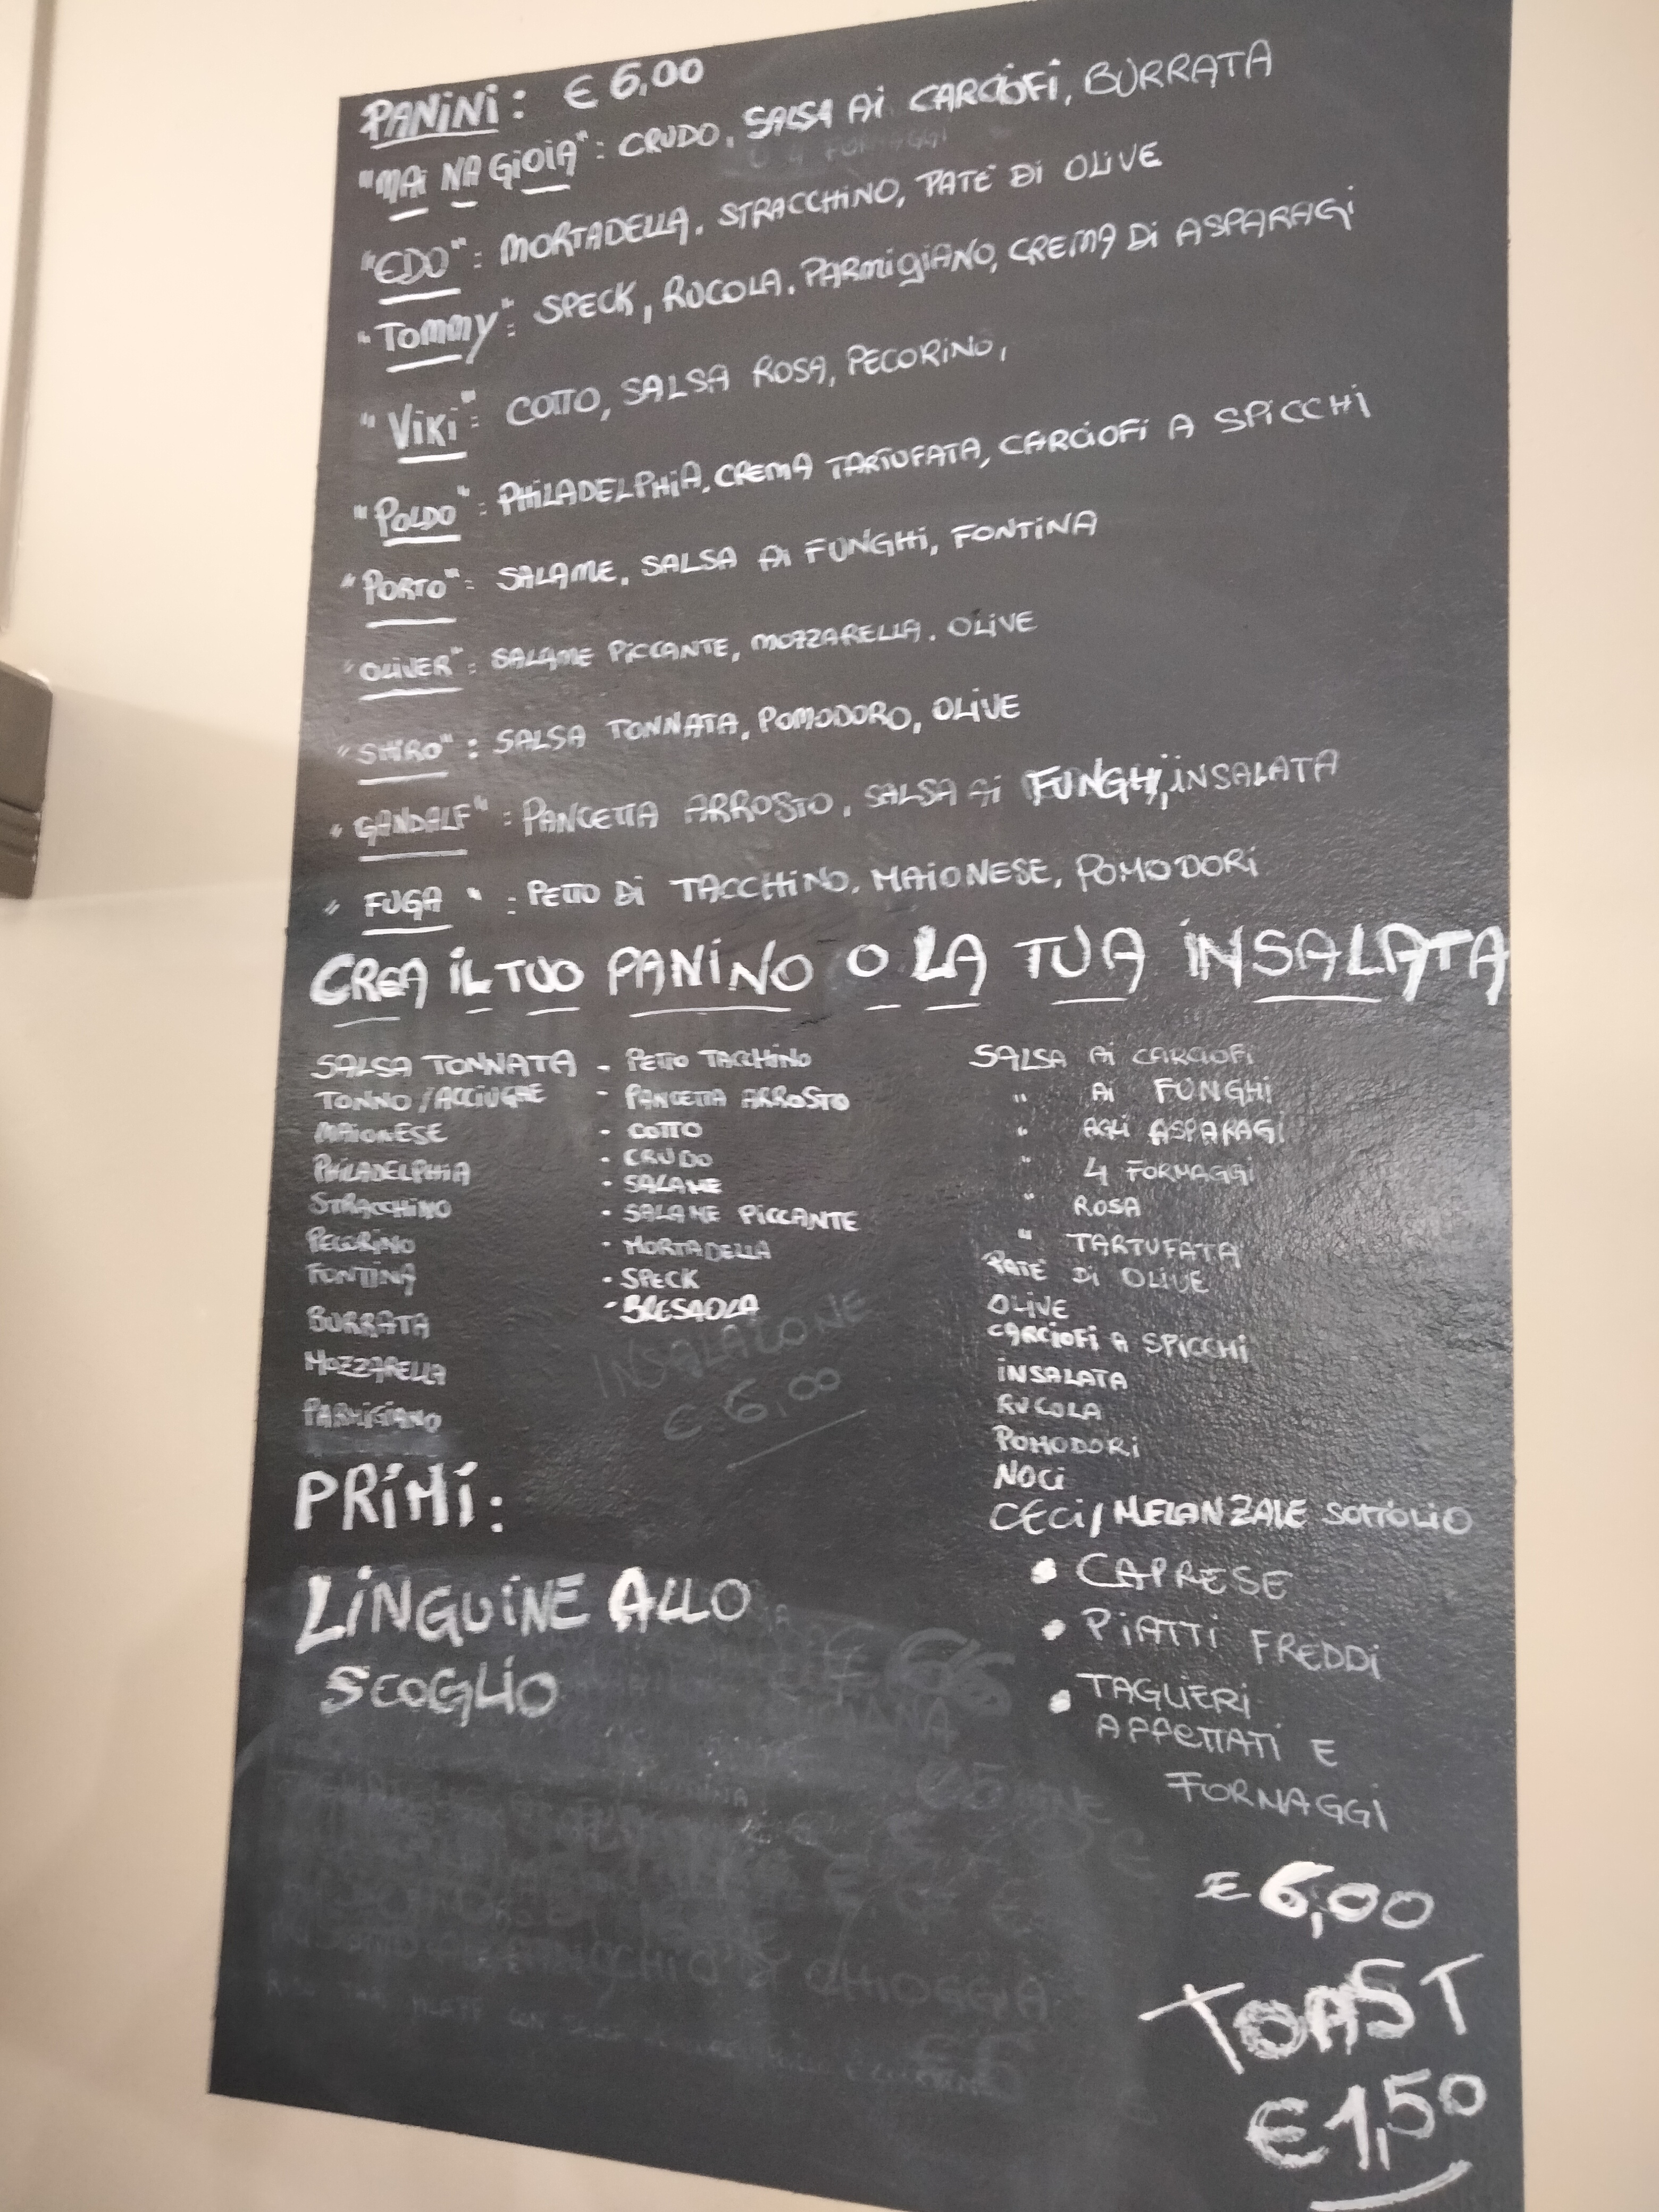 PANINI: € 6,00
"MAI NA GIOIA": CRUDO, SALSA AI CARCIOFI, BURRATA
"EDO": MORTADELLA, STRACCHINO, PATE' DI OLIVE
"TOMMY": SPECK, RUCOLA, PARMIGIANO, CREMA DI ASPARAGI
"VIKI": COTTO, SALSA ROSA, PECORINO,
"POLDO": PHILADELPHIA, CREMA TARTUFATA, CARCIOFI A SPICCHI
"PORTO": SALAME, SALSA AI FUNGHI, FONTINA
"OLIVER": SALAME PICCANTE, MOZZARELLA, OLIVE
"SHIRO": SALSA TONNATA, POMODORO, OLIVE
"GANDALF": PANCETTA ARROSTO, SALSA AI FUNGHI, INSALATA
"FUGA": PETTO DI TACCHINO, MAIONESE, POMODORI
CREA IL TUO PANINO O LA TUA INSALATA
SALSA TONNATA
TONNO / ACCIUGHE
MAIONESE
PHILADELPHIA
STRACCHINO
PECORINO
FONTINA
BURRATA
MOZZARELLA
PARMIGIANO
- PETTO TACCHINO
- PANCETTA ARROSTO
- COTTO
- CRUDO
- SALAME
- SALAME PICCANTE
- MORTADELLA
- SPECK
- BRESAOLA
INSALATONE
€ 6,00
SALSA AI CARCIOFI
" AI FUNGHI
" AGLI ASPARAGI
" 4 FORMAGGI
" ROSA
" TARTUFATA
PATE' DI OLIVE
OLIVE
CARCIOFI A SPICCHI
INSALATA
RUCOLA
POMODORI
NOCI
CECI / MELANZALE SOTTOLIO
PRIMI:
LINGUINE ALLO
SCOGLIO
• CAPRESE
• PIATTI FREDDI
• TAGLIERI
AFFETTATI E
FORMAGGI
€ 6,00
TOAST
€ 1,50